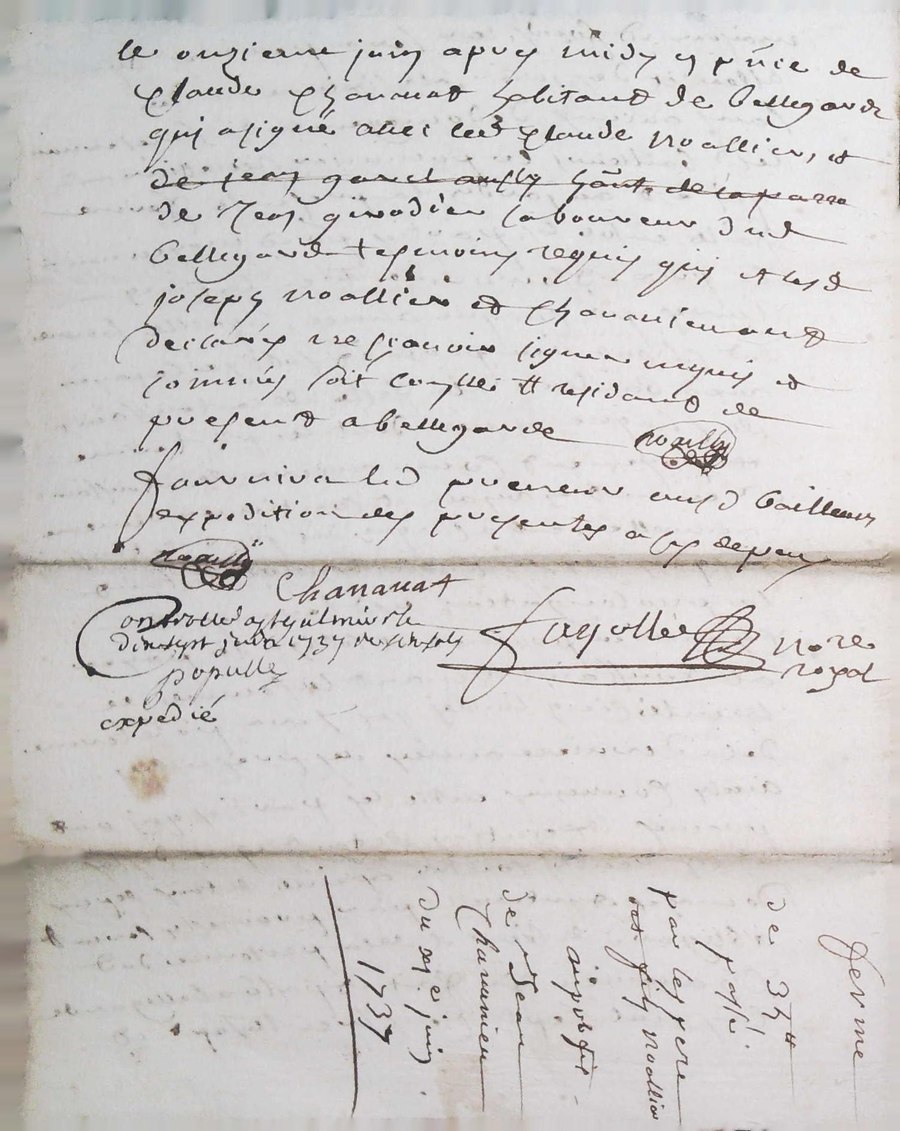 le onzieme juin apres midy en pñce de
Claude Chanauat habitant de bellegarde
qui a signé avec led Claude noallier, et
de jean aussy hant. de la parre
de Jean girodier laboureur dud
bellegarde tesmoins requis qui et led
joseph noallier et Chananieu ont
declarés ne scavoir signer enquis et
sommés soit resident de
present a bellegarde
fournira led preneur ausd bailleurs
expedition des presentes a ses depens
Chanauat
Controllé a
dixsept juin 1737
expedié
fayolle nore
royal
ferme
de 34 ₶
passé
par les pere
et fils noallier
au profit
de Jean
Chananieu
du xi.e juin.
1737